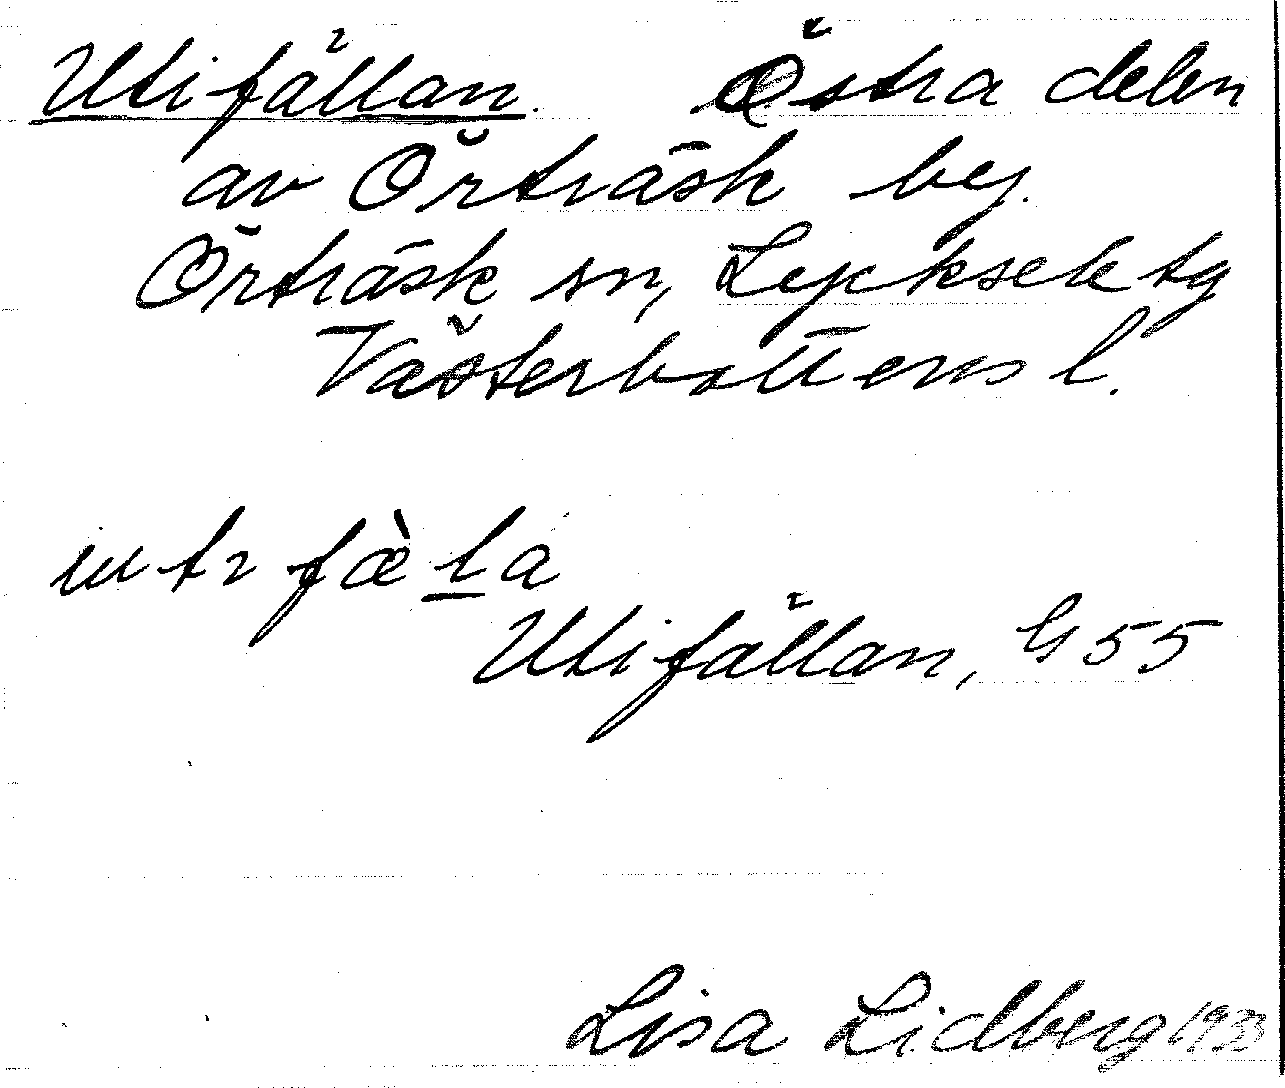 Utifällan. Östra delen
av Örträsk by.
Örträsk sn, Lycksele tg
Västerbottens l.
utı fæ̀la
Utifällan, G 55
Lisa Lidberg 1933